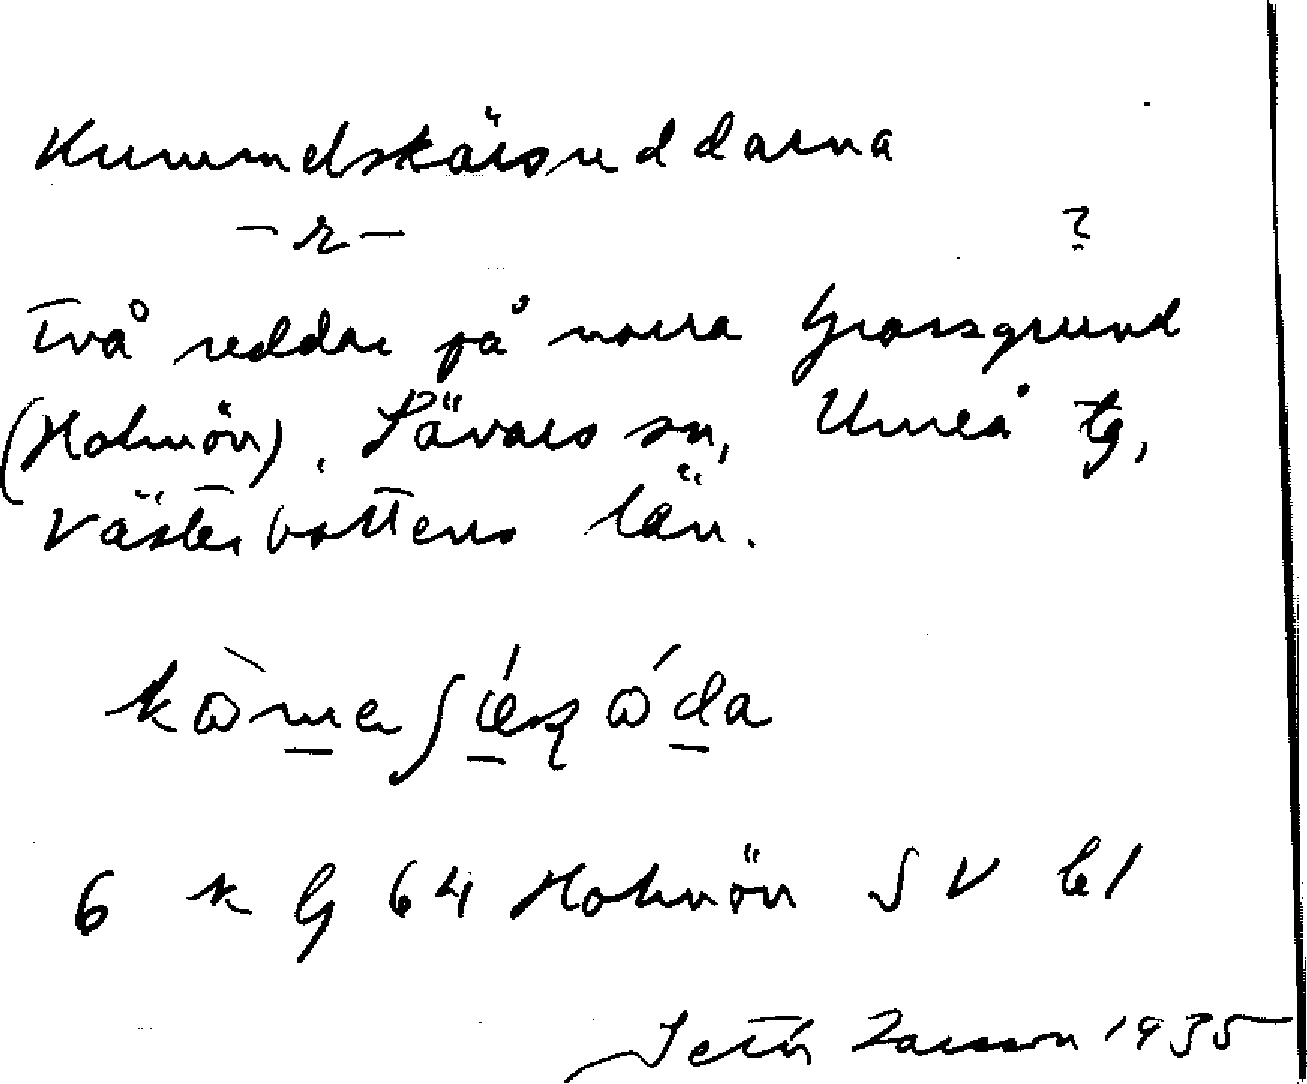 Kummelskärsuddarna
– r –
?
Två uddar på norra Grossgrund
(Holmön). Sävars sn, Umeå tg,
Västerbottens län.
6 k G 64 Holmön SV bl
Setth Larsson 1935